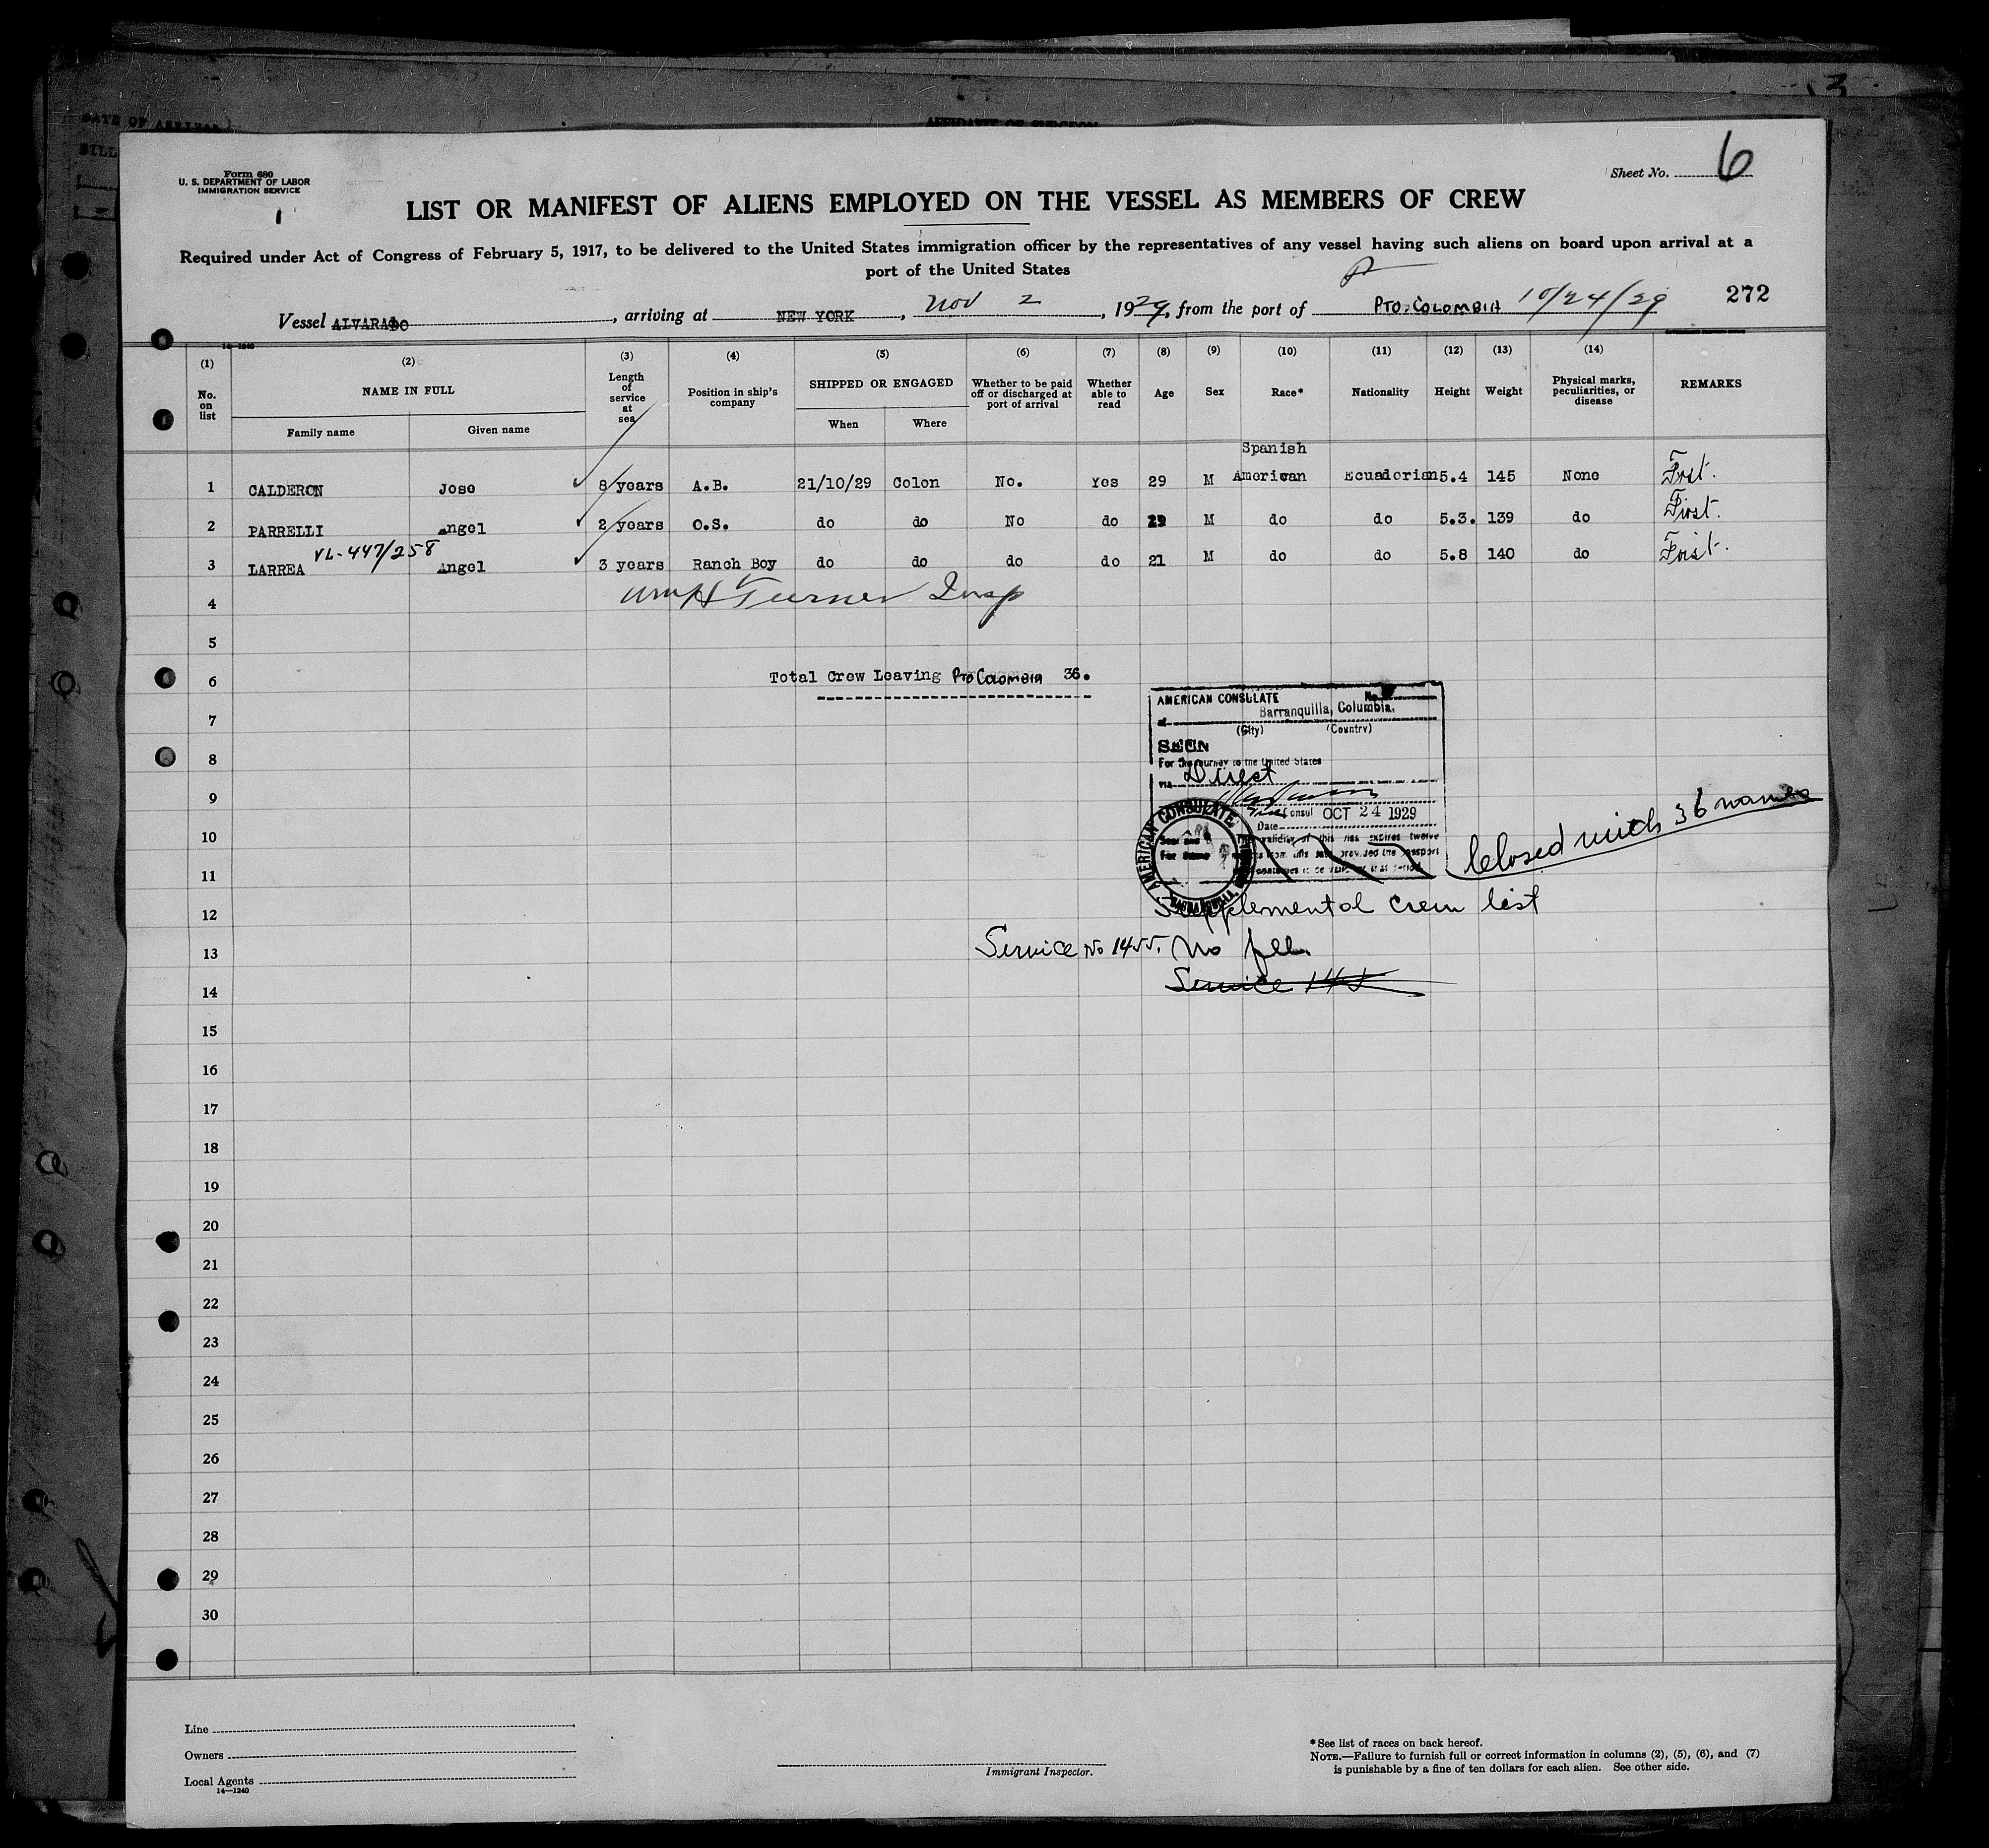 DATE OF ARRIVAL
AFFIDAVIT OF SURGEON
3
BILL
Form 680
U. S. DEPARTMENT OF LABOR
IMMIGRATION SERVICE
Sheet No. 6
1
LIST OR MANIFEST OF ALIENS EMPLOYED ON THE VESSEL AS MEMBERS OF CREW
Required under Act of Congress of February 5, 1917, to be delivered to the United States immigration officer by the representatives of any vessel having such aliens on board upon arrival at a
port of the United States
Vessel ALVARADO, arriving at NEW YORK, Nov 2, 1929, from the port of PTO. COLOMBIA 10/24/29 272
14-1240
(1) (2) (3) (4) (5) (6) (7) (8) (9) (10) (11) (12) (13) (14)
No. on list NAME IN FULL Length of service at sea Position in ship's company SHIPPED OR ENGAGED Whether to be paid off or discharged at port of arrival Whether able to read Age Sex Race* Nationality Height Weight Physical marks, peculiarities, or disease REMARKS
Family name Given name When Where
Spanish
1 CALDERON Jose 8 years A.B. 21/10/29 Colon No. Yes 29 M American Ecuadorian 5.4 145 None First.
2 PARRELLI Angel 2 years O.S. do do No do 29 M do do 5.3. 139 do First.
VL-447/258
3 LARREA Angel 3 years Ranch Boy do do do do 21 M do do 5.8 140 do First.
Wm H Turner Insp
4
5
6 Total Crew Leaving Pto Colombia 36.
7
8
9
10
11
12
13
14
15
16
17
18
19
20
21
22
23
24
25
26
27
28
29
30
AMERICAN CONSULATE No.
at Barranquilla, Columbia.
(City) (Country)
SEEN
For the journey to the United States
via Direct
Vice Consul OCT 24 1929
Date
validity of this visa expires twelve
from this date provided the passport
continues to be valid for that period
AMERICAN CONSULATE
BARRANQUILLA
Closed with 36 names
Supplemental crew list
Service No 1455. No fee.
Service 145
Line
Owners
Local Agents
14—1240
Immigrant Inspector.
*See list of races on back hereof.
NOTE.—Failure to furnish full or correct information in columns (2), (5), (6), and (7)
is punishable by a fine of ten dollars for each alien. See other side.